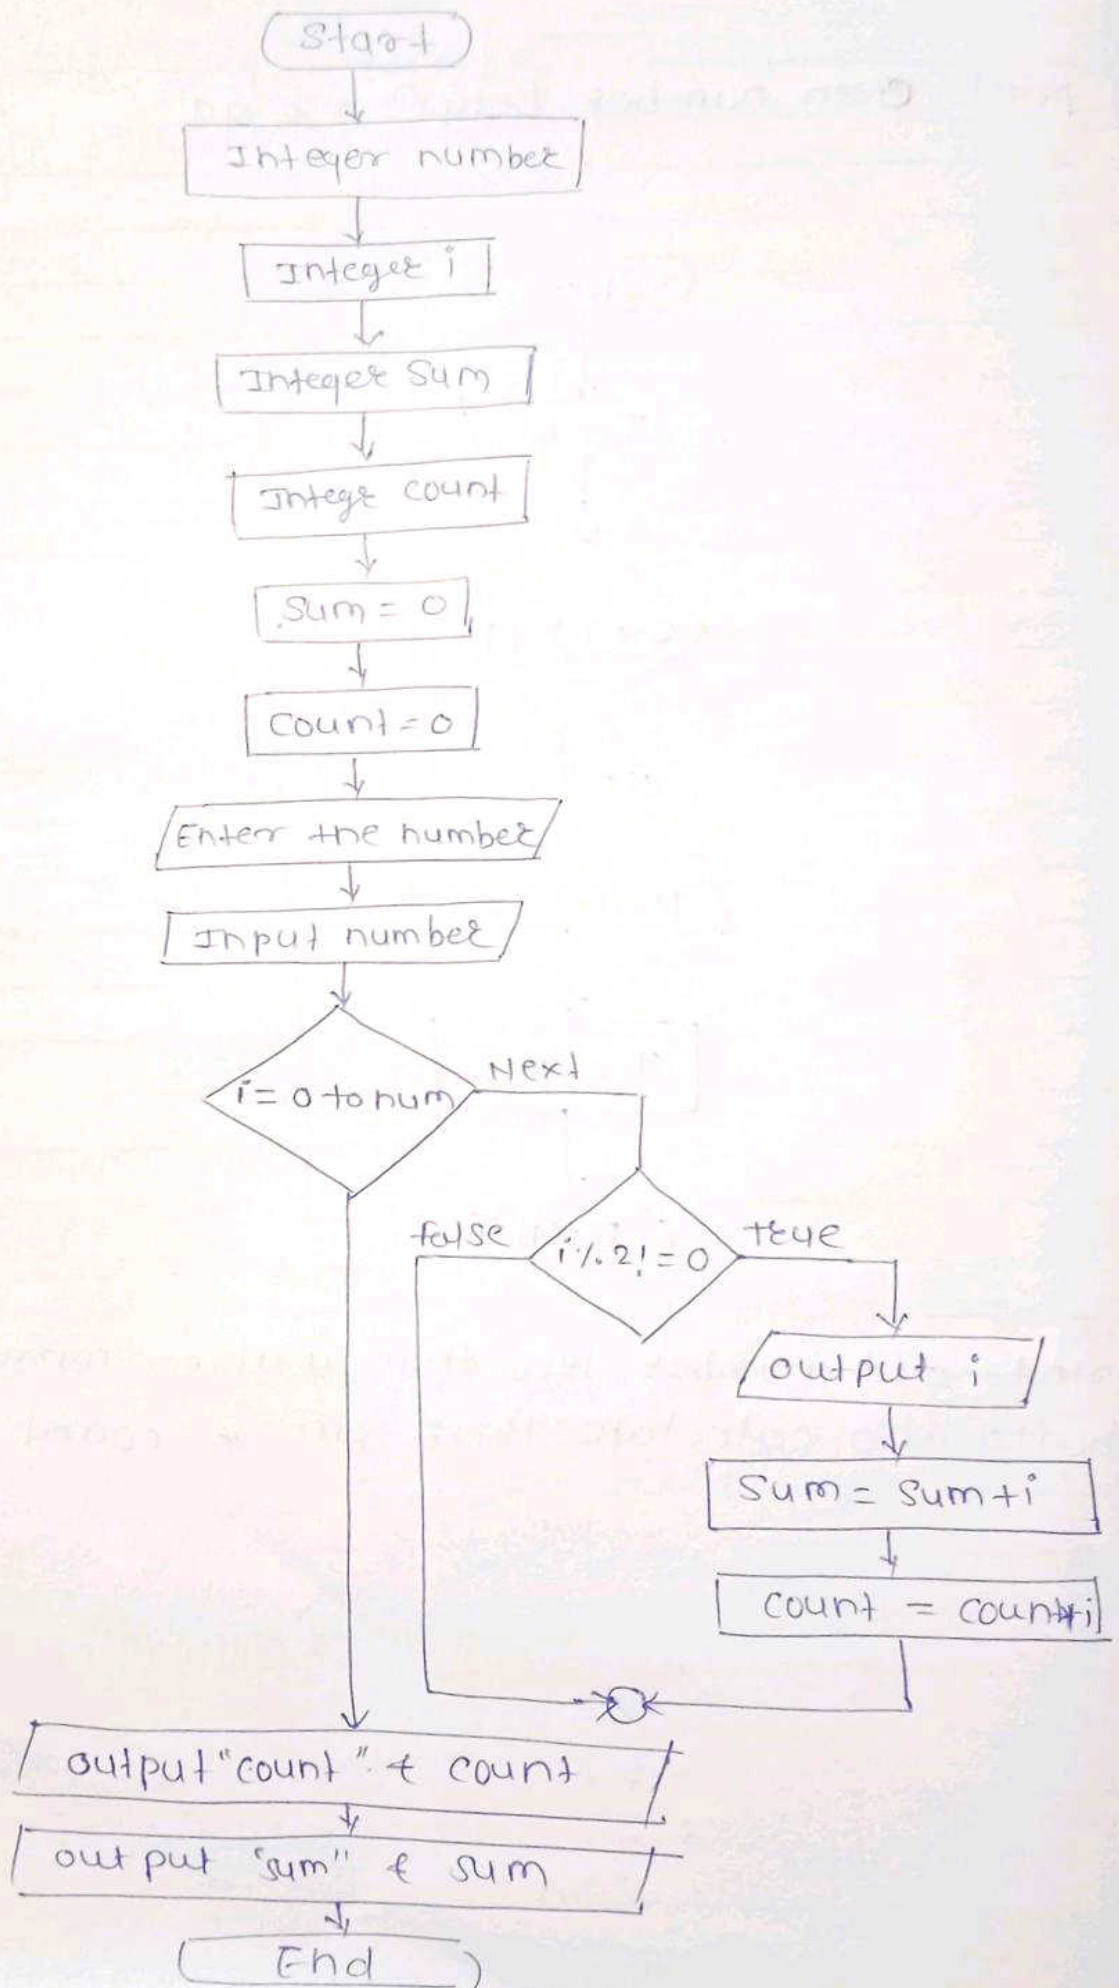 Start
Integer number
Integer i
Integer Sum
Integr count
Sum = 0
Count = 0
Enter the number
Input number
i = 0 to num
Next
false
i % 2! = 0
true
output i
Sum = Sum + i
count = count+i
output "count" & count
output "sum" & sum
End